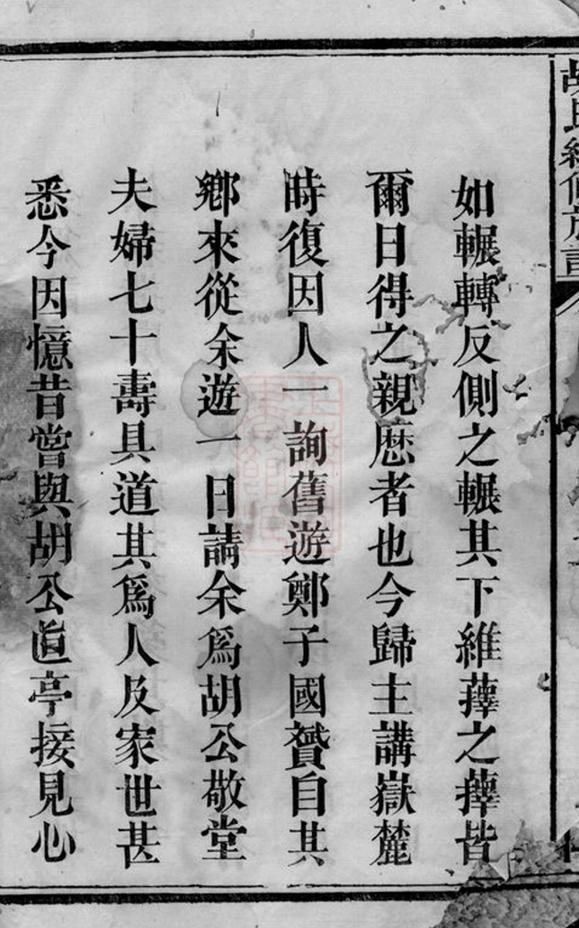 胡氏續修族譜
如輾轉反側之輾其下維蘀之蘀皆
爾日得之親歷者也今歸主講嶽麓
時復因人一詢舊遊鄭子國贇自其
鄉來從余遊一日請余爲胡公敬堂
夫婦七十壽具道其爲人及家世甚
悉今因憶昔嘗與胡公直亭接見心